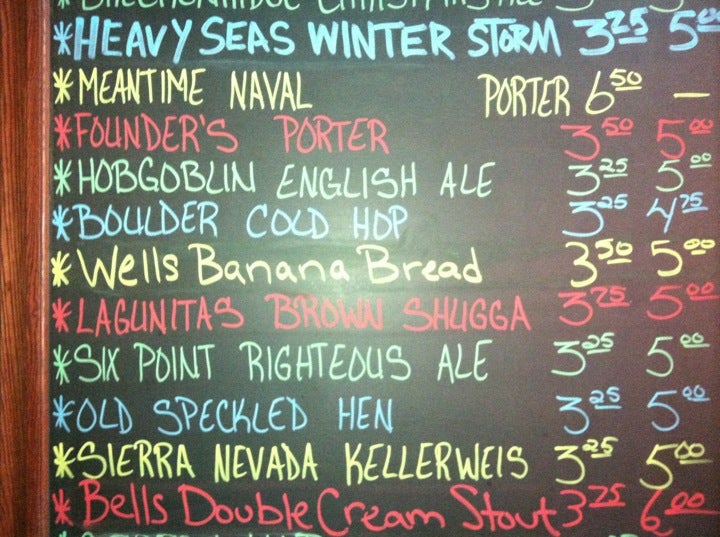 *HEAVY SEAS WINTER STORM 3.25 5.00
*MEANTIME NAVAL PORTER 6.50 —
*FOUNDER'S PORTER 3.50 5.00
*HOBGOBLIN ENGLISH ALE 3.25 5.00
*BOULDER COLD HOP 3.25 4.25
*Wells Banana Bread 3.50 5.00
*LAGUNITAS BROWN SHUGGA 3.25 5.00
*SIX POINT RIGHTEOUS ALE 3.25 5.00
*OLD SPECKLED HEN 3.25 5.00
*SIERRA NEVADA KELLERWEIS 3.25 5.00
*Bells Double Cream Stout 3.25 6.00